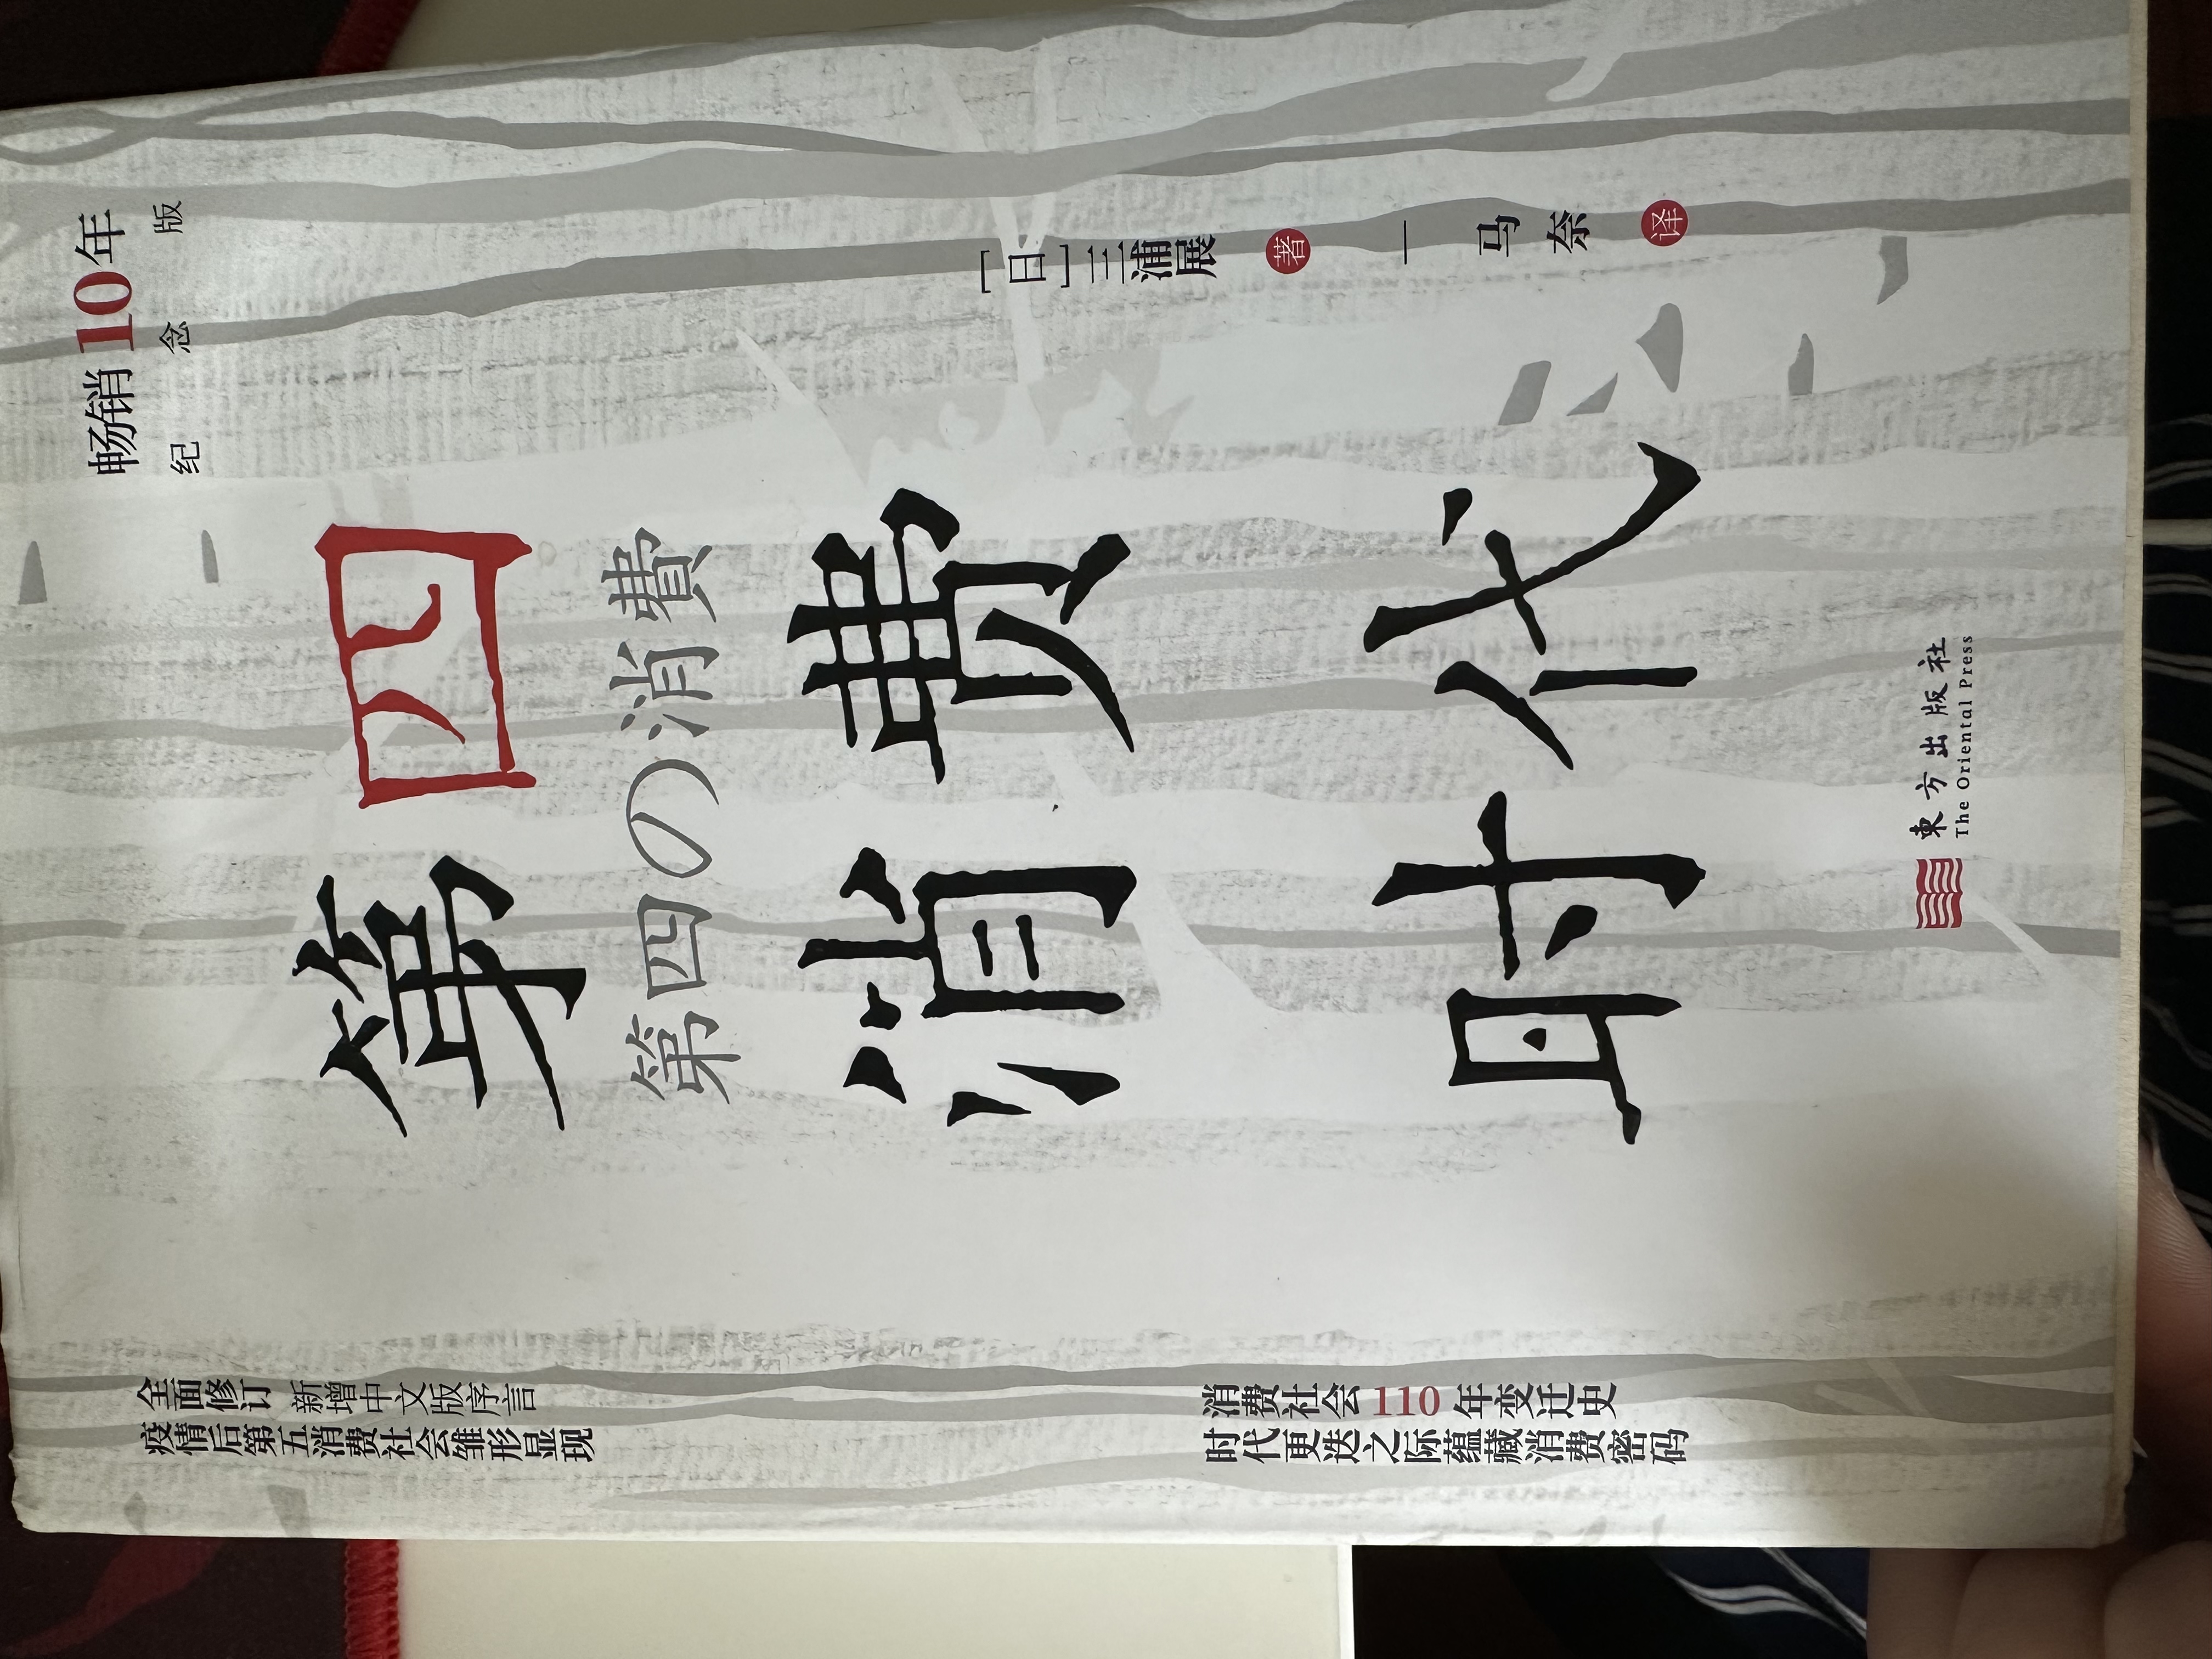 畅销10年
纪念版
第四
第四の消費
消费
时代
[日]三浦展 著
马奈 译
東方出版社
The Oriental Press
全面修订 新增中文版序言
疫情后第五消费社会雏形显现
消费社会110年变迁史
时代更迭之际蕴藏消费密码